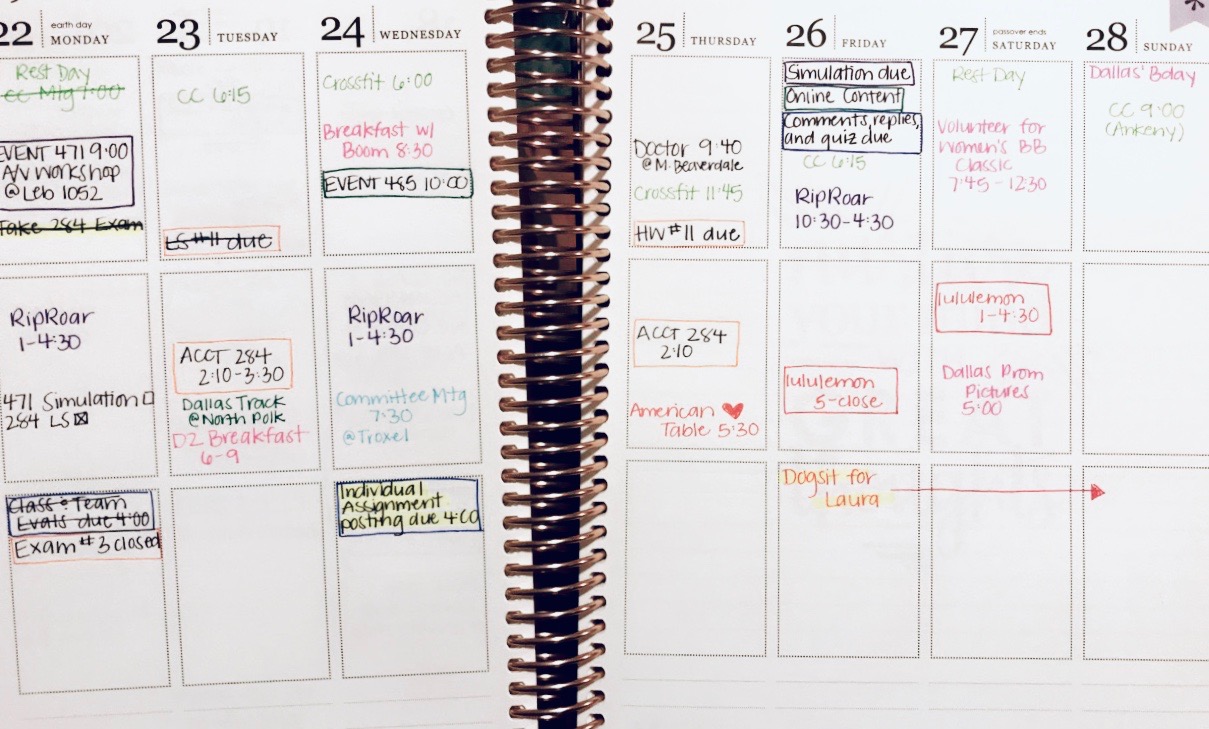 22 earth day
MONDAY
Rest Day
CC Mtg 7:00
EVENT 471 9:00
A/V Workshop
@Leb 1052
Take 284 Exam
RipRoar
1-4:30
471 Simulation
284 LS
Class & Team
Evals due 4:00
Exam #3 closed
23 TUESDAY
CC 6:15
LS #11 due
ACCT 284
2:10-3:30
Dallas Track
@North Polk
DZ Breakfast
6-9
24 WEDNESDAY
Crossfit 6:00
Breakfast w/
Boom 8:30
EVENT 485 10:00
RipRoar
1-4:30
Committee Mtg
7:30
@Troxel
Individual
Assignment
posting due 4:00
25 THURSDAY
Doctor 9:40
@M. Beaverdale
Crossfit 11:45
HW #11 due
ACCT 284
2:10
American ♥
Table 5:30
26 FRIDAY
Simulation due
Online Content
Comments, replies,
and quiz due
CC 6:15
RipRoar
10:30-4:30
lululemon
5-close
Dogsit for
Laura
27 passover ends
SATURDAY
Rest Day
Volunteer for
Women's BB
Classic
7:45-12:30
lululemon
1-4:30
Dallas Prom
Pictures
5:00
28 SUNDAY
Dallas' Bday
CC 9:00
(Ankeny)